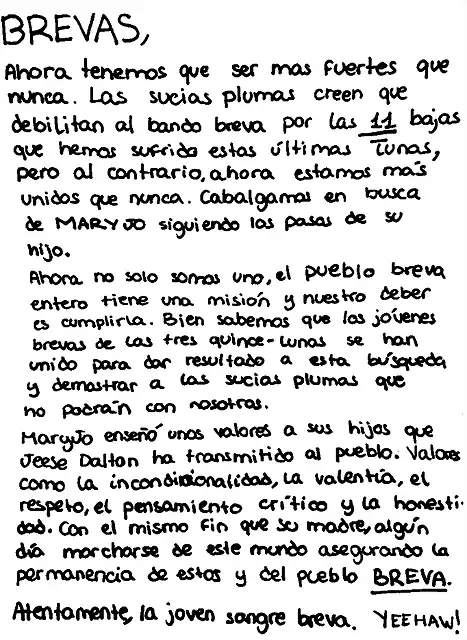 BREVAS,
Ahora tenemos que ser mas fuertes que
nunca. Las sucias plumas creen que
debilitan al bando breva por las 11 bajas
que hemos sufrido estas últimas lunas,
pero al contrario, ahora estamos más
unidos que nunca. Cabalgamos en busca
de MARYJO siguiendo los pasos de su
hijo.
Ahora no solo somos uno, el pueblo breva
entero tiene una misión y nuestro deber
es cumplirla. Bien sabemos que los jóvenes
brevas de las tres quince-lunas se han
unido para dar resultado a esta búsqueda
y demostrar a las sucias plumas que
no podrán con nosotros.
MaryJo enseñó unos valores a sus hijos que
Jeese Dalton ha transmitido al pueblo. Valores
como la incondicionalidad, la valentía, el
respeto, el pensamiento crítico y la honesti-
dad. Con el mismo fin que su madre, algún
día marcharse de este mundo asegurando la
permanencia de estos y del pueblo BREVA.
Atentamente, la joven sangre breva. YEEHAW!